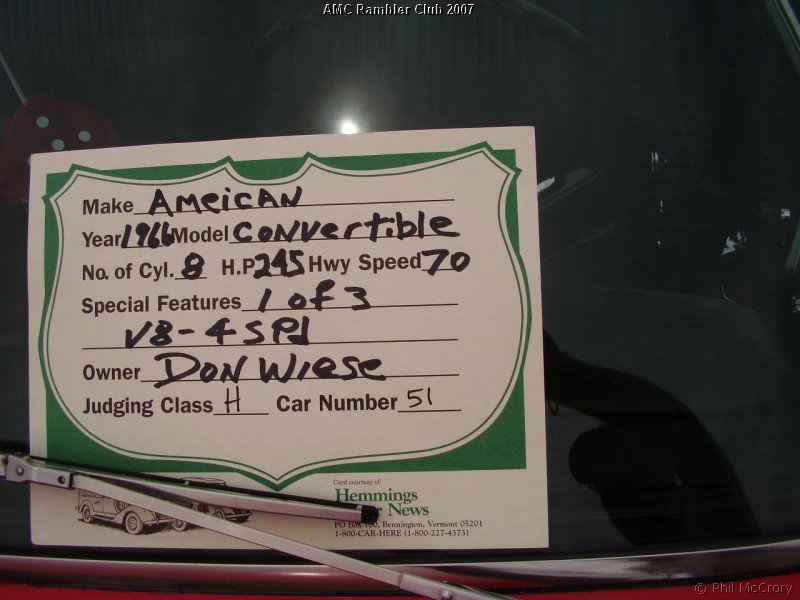 AMC Rambler Club 2007
Make AMEICAN
Year 1966 Model CONVertible
No. of Cyl. 8 H.P. 245 Hwy Speed 70
Special Features 1 of 3
V8-4SPd
Owner DON Wiese
Judging Class H Car Number 51
Card courtesy of:
Hemmings
News
PO Box 100, Bennington, Vermont 05201
1-800-CAR-HERE (1-800-227-4373)
© Phil McCrory